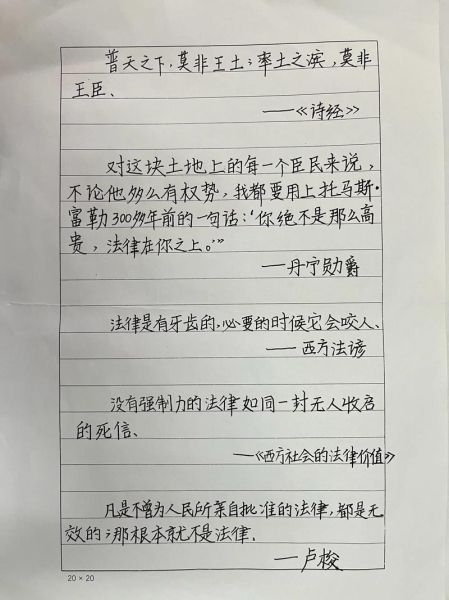 普天之下，莫非王土；率土之滨，莫非
王臣、
——《诗经》
对这块土地上的每一个臣民来说，
不论他多么有权势，我都要用上托马斯·
富勒300多年前的一句话：‘你绝不是那么高
贵，法律在你之上。’”
——丹宁勋爵
法律是有牙齿的，必要的时候它会咬人、
——西方法谚
没有强制力的法律如同一封无人收启
的死信、
——《西方社会的法律价值》
凡是不曾为人民所亲自批准的法律，都是无
效的；那根本就不是法律.
——卢梭
20×20